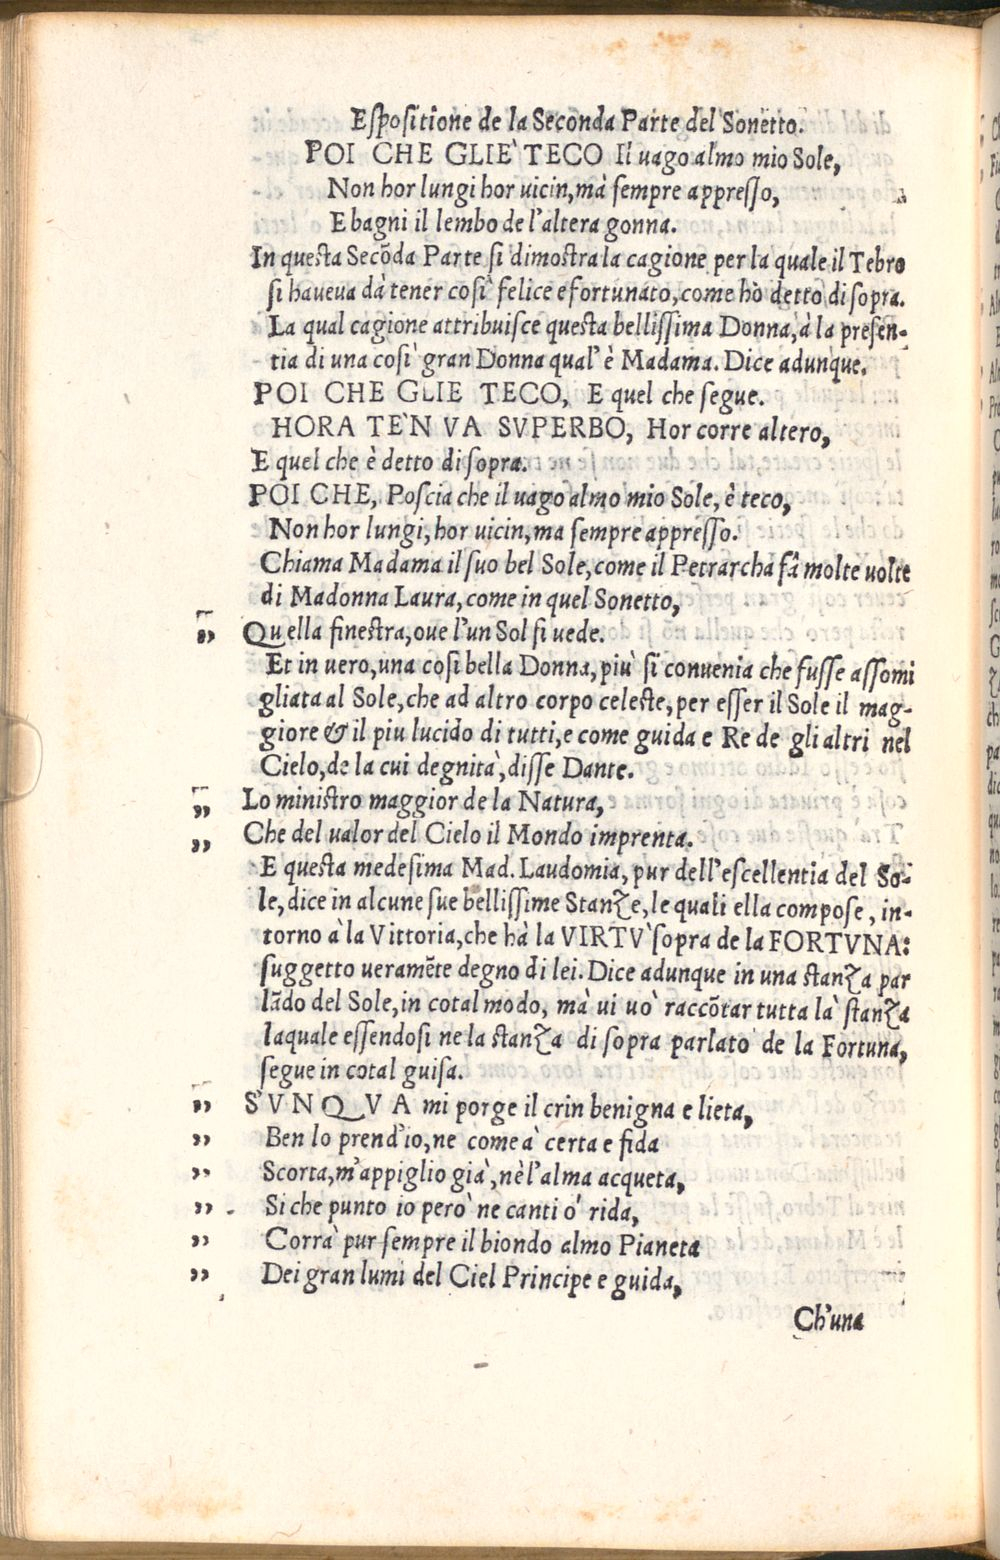 Eſpoſitione de la Seconda Parte del Sonetto.
POI CHE GLIE' TECO Il uago almo mio Sole,
Non hor lungi hor uicin, mà ſempre appreſſo,
E bagni il lembo de l'altera gonna.
In queſta Secōda Parte ſi dimoſtra la cagione per la quale il Tebro
ſi haueua dà tener coſì felice e fortunato, come hò detto di ſopra.
La qual cagione attribuiſce queſta belliſſima Donna, à la preſen-
tia di una coſì gran Donna qual'è Madama. Dice adunque.
POI CHE GLIE TECO, E quel che ſegue.
HORA TE'N VA SVPERBO, Hor corre altero,
E quel che è detto di ſopra.
POI CHE, Poſcia che il uago almo mio Sole, è teco,
Non hor lungi, hor uicin, ma ſempre appreſſo.
Chiama Madama il ſuo bel Sole, come il Petrarcha fà molte uolte
di Madonna Laura, come in quel Sonetto,
„ Quella fineſtra, oue l'un Sol ſi uede.
Et in uero, una coſi bella Donna, più ſi conuenia che fuſſe aſſomi
gliata al Sole, che ad altro corpo celeſte, per eſſer il Sole il mag-
giore & il piu lucido di tutti, e come guida e Re de gli altri nel
Cielo, de la cui degnità, diſſe Dante.
„ Lo miniſtro maggior de la Natura,
„ Che del ualor del Cielo il Mondo imprenta.
E queſta medeſima Mad. Laudomia, pur dell'eſcellentia del So-
le, dice in alcune ſue belliſſime Stanze, le quali ella compoſe, in-
torno à la Vittoria, che hà la VIRTV' ſopra de la FORTVNA:
ſuggetto ueramēte degno di lei. Dice adunque in una ſtanza par
lādo del Sole, in cotal modo, mà ui uò raccōtar tutta là ſtanza
laquale eſſendoſi ne la ſtanza di ſopra parlato de la Fortuna,
ſegue in cotal guiſa.
„ S'VNQVA mi porge il crin benigna e lieta,
„ Ben lo prend'io, ne come à certa e fida
„ Scorta, m'appiglio già, nè l'alma acqueta,
„ Si che punto io però ne canti ò rida,
„ Corrà pur ſempre il biondo almo Pianeta
„ Dei gran lumi del Ciel Principe e guida,
Ch'una